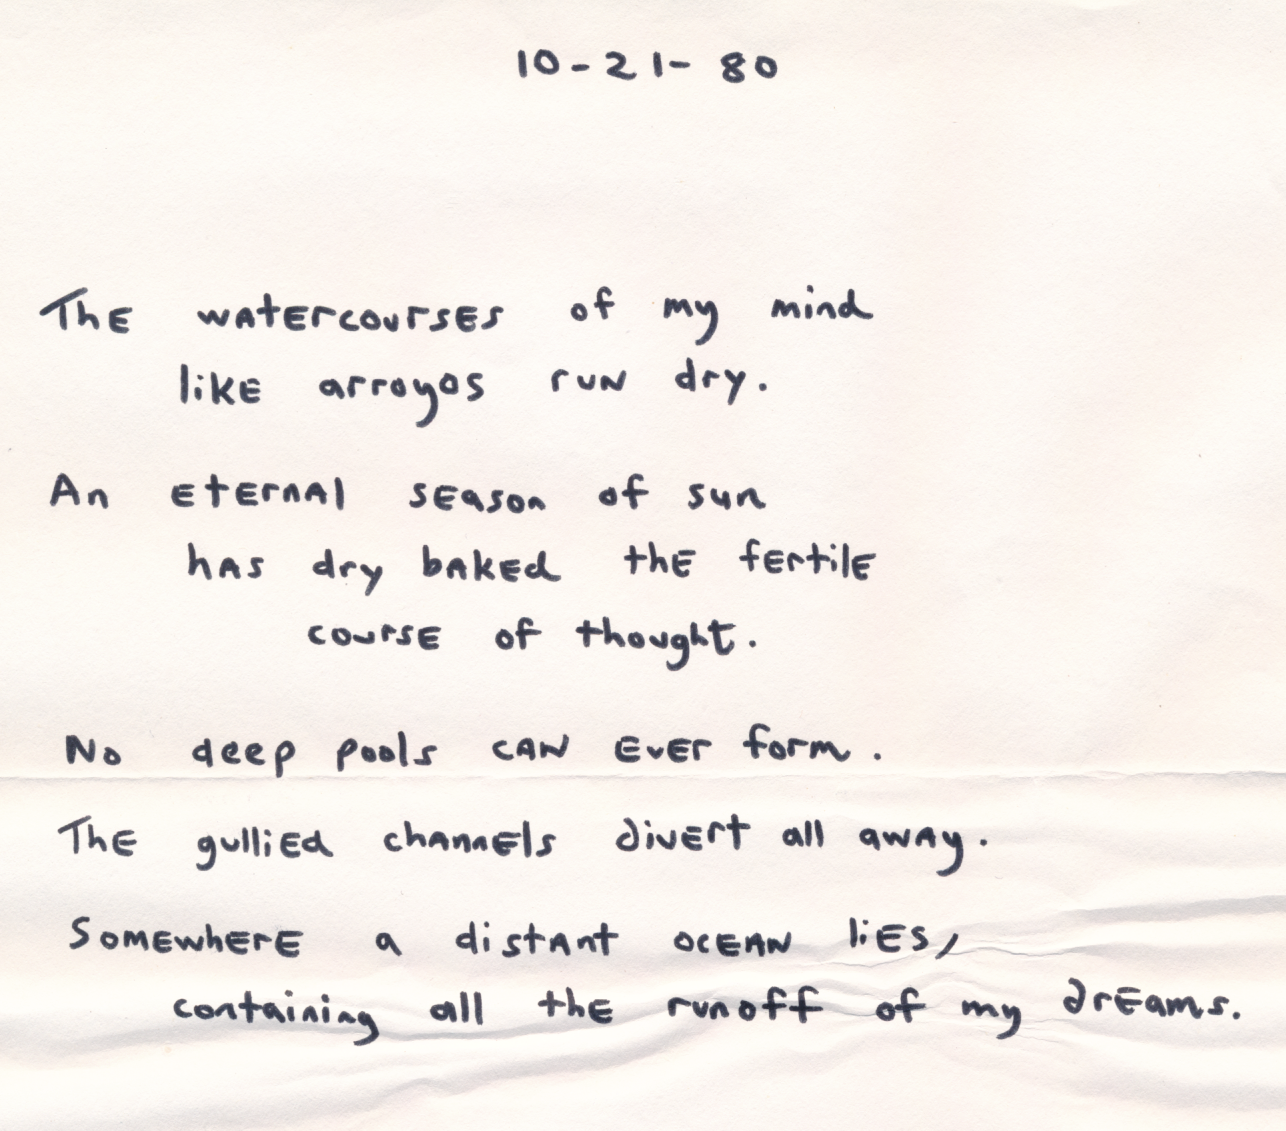 10-21-80
The watercourses of my mind
like arroyos run dry.
An eternal season of sun
has dry baked the fertile
course of thought.
No deep pools can ever form.
The gullied channels divert all away.
Somewhere a distant ocean lies,
containing all the runoff of my dreams.